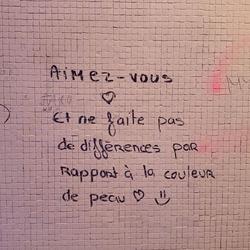 AiMEZ-VOUS
♡
Et ne faite pas
de différences par
rapport à la couleur
de peau ♡ :)